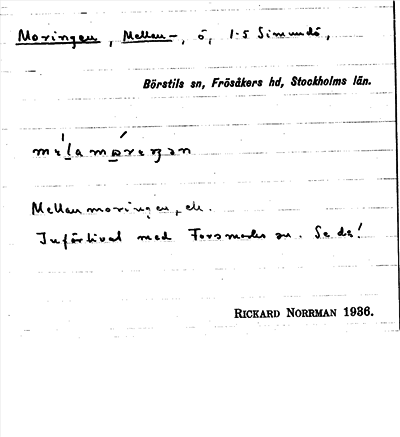 Moringen, Mellan-, ö, 1-5 Simundö,
Börstils sn, Frösåkers hd, Stockholms län.
Mellanmoringen, ek.
Införlivat med Forsmarks sn. Se de!
RICKARD NORRMAN 1936.